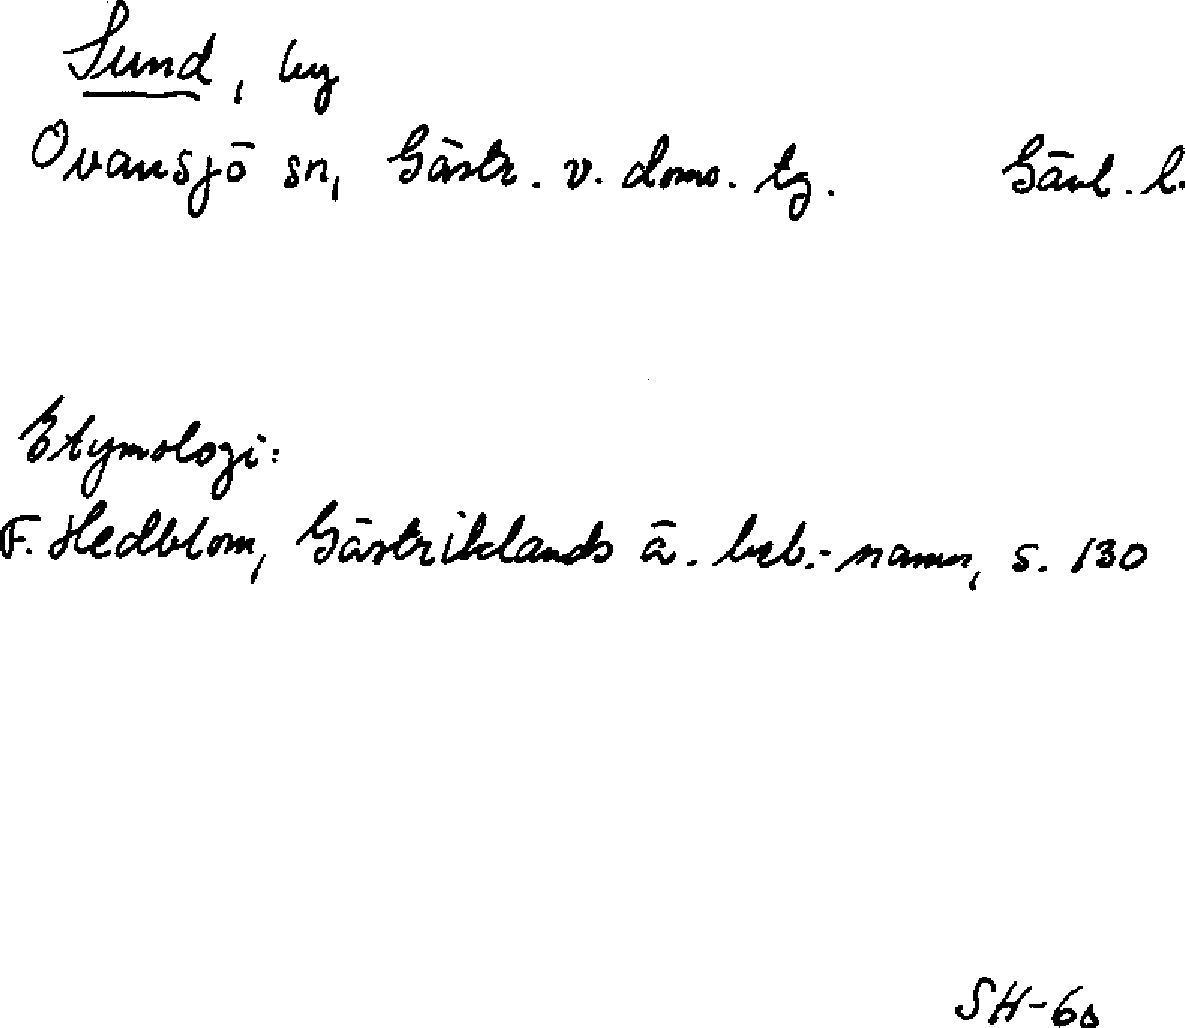 Sund, by
Ovansjö sn, Gästr. v. doms. tg. Gävl. l.
Etymologi:
F. Hedblom, Gästriklands ä. beb.-namn, s. 130
SH-60